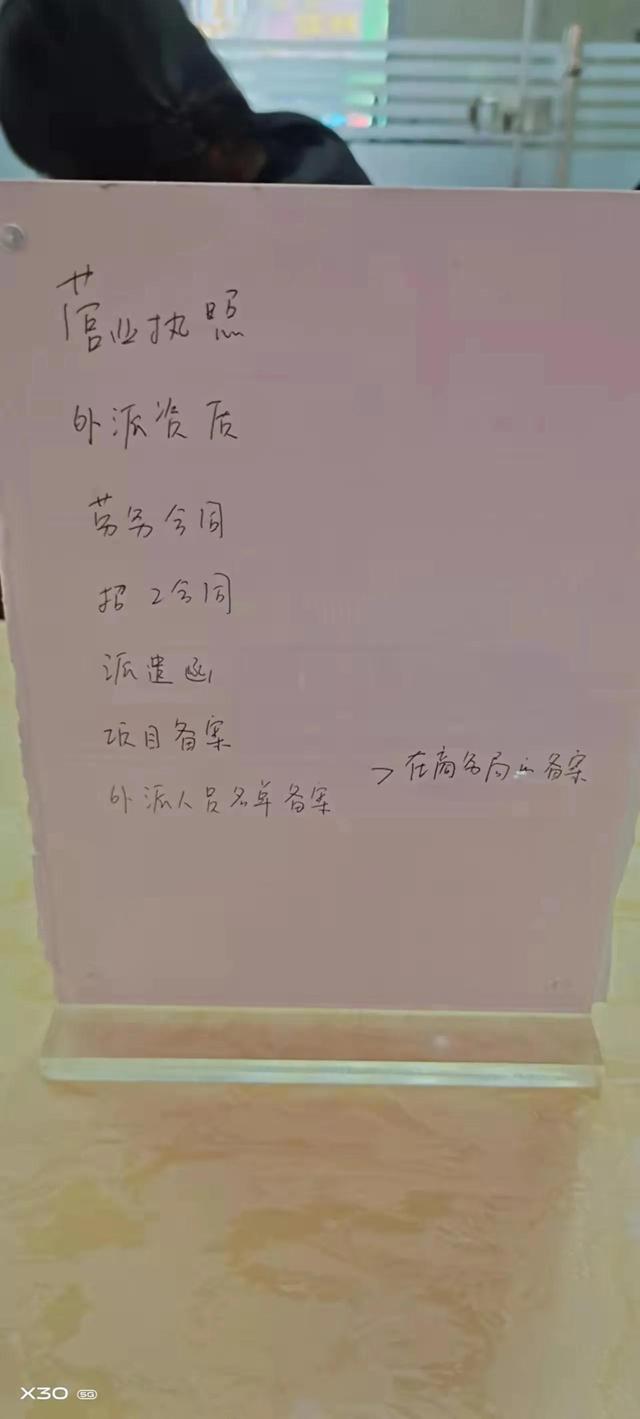 营业执照
外派资质
劳务合同
招工合同
派遣函
项目备案
外派人员名单备案
>在商务局的备案
X30 5G